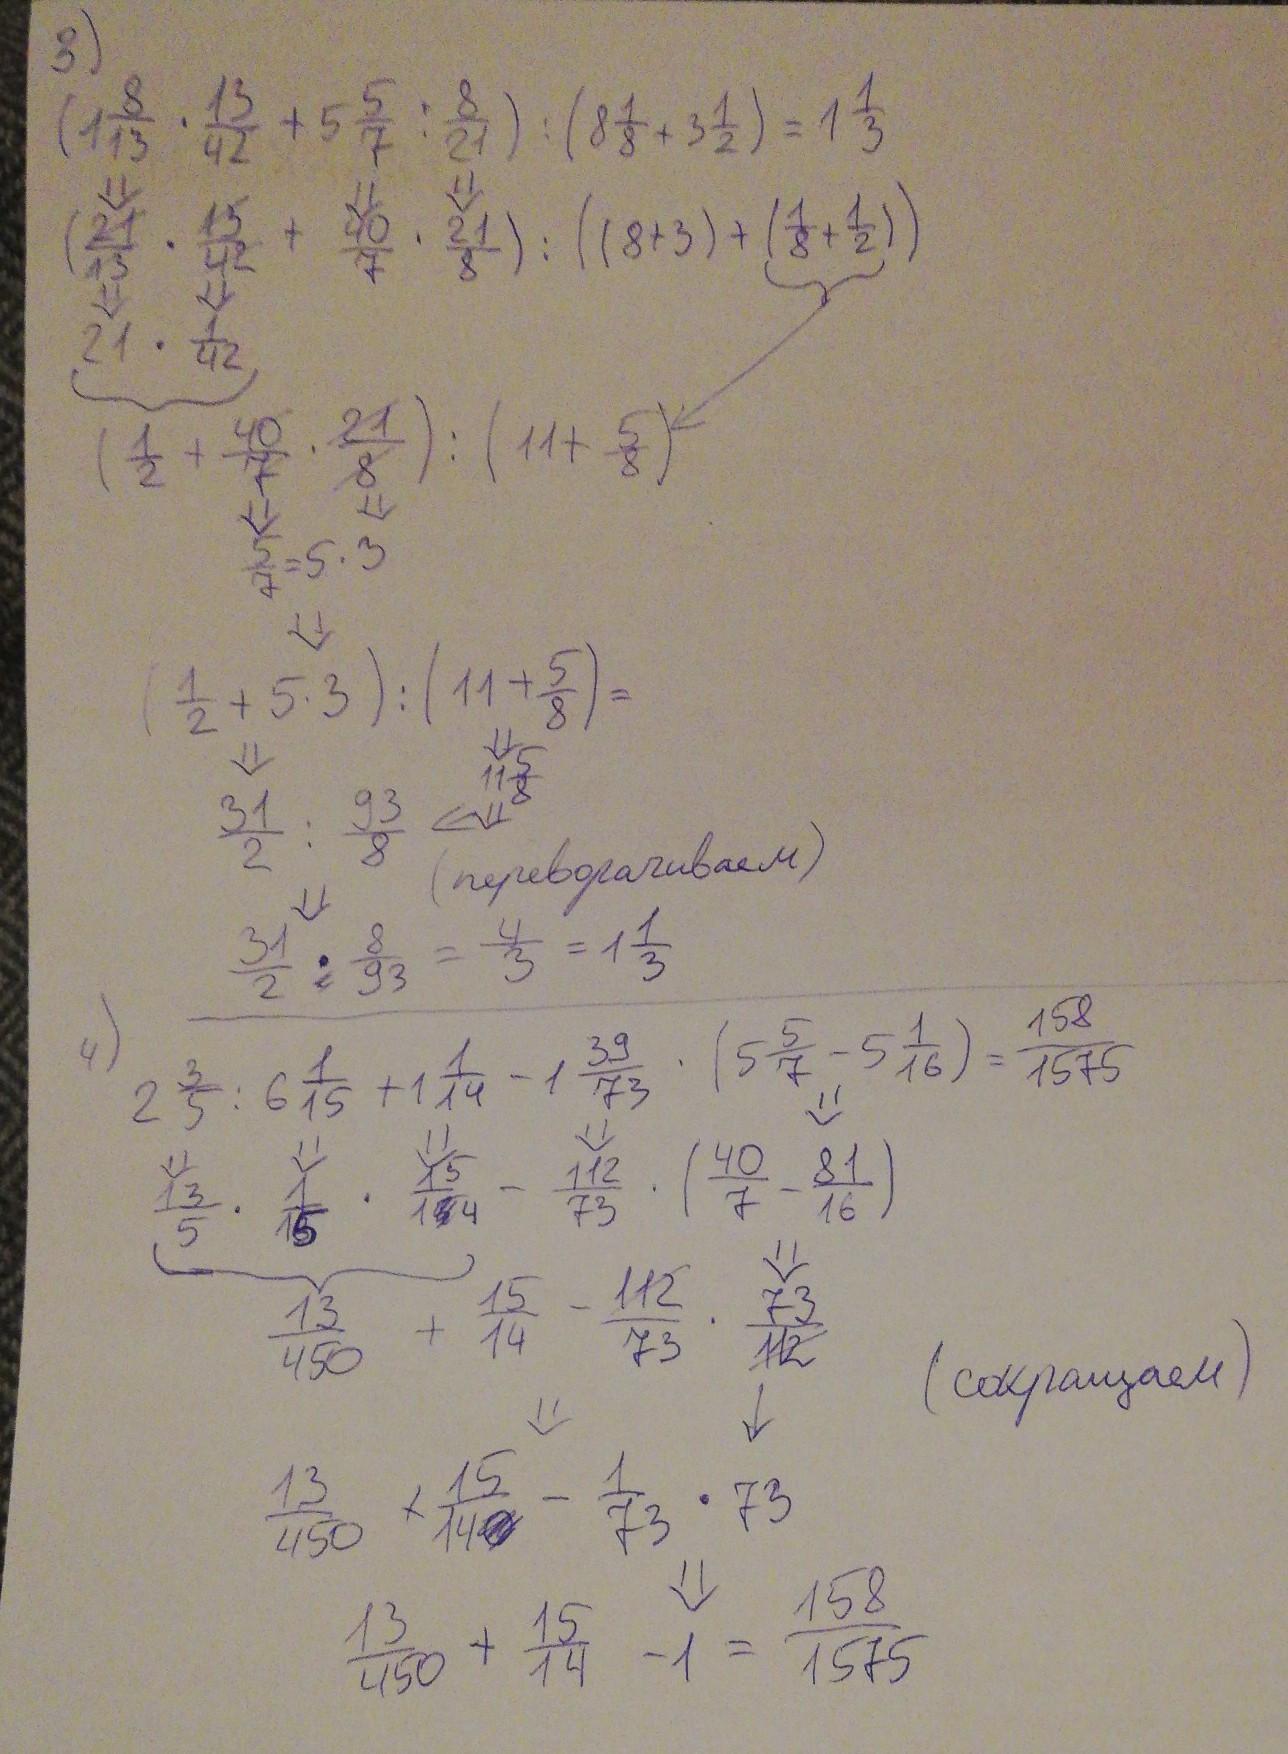 3)
(1 8/13 · 13/42 + 5 5/7 : 8/21) : (8 1/8 + 3 1/2) = 1 1/3
⇓ ⇓ ⇓
(21/13 · 13/42 + 40/7 · 21/8) : ((8+3) + (1/8 + 1/2))
⇓ ⇓
21 · 1/42
(1/2 + 40/7 · 21/8) : (11 + 5/8)
⇓ ⇓
5/7 = 5 · 3
⇓
(1/2 + 5·3) : (11 + 5/8) =
⇓ ⇓
11 5/8
31/2 : 93/8 ⇐
(переворачиваем)
⇓
31/2 · 8/93 = 4/3 = 1 1/3
4)
2 3/5 : 6 1/15 + 1 1/14 − 1 39/73 · (5 5/7 − 5 1/16) = 158/1575
⇓ ⇓ ⇓ ⇓ ⇓
13/5 · 1/15 · 15/14 − 112/73 · (40/7 − 81/16)
⇓
13/450 + 15/14 − 112/73 · 73/112
(сокращаем)
⇓ ↓
13/450 + 15/14 − 1/73 · 73
⇓
13/450 + 15/14 − 1 = 158/1575